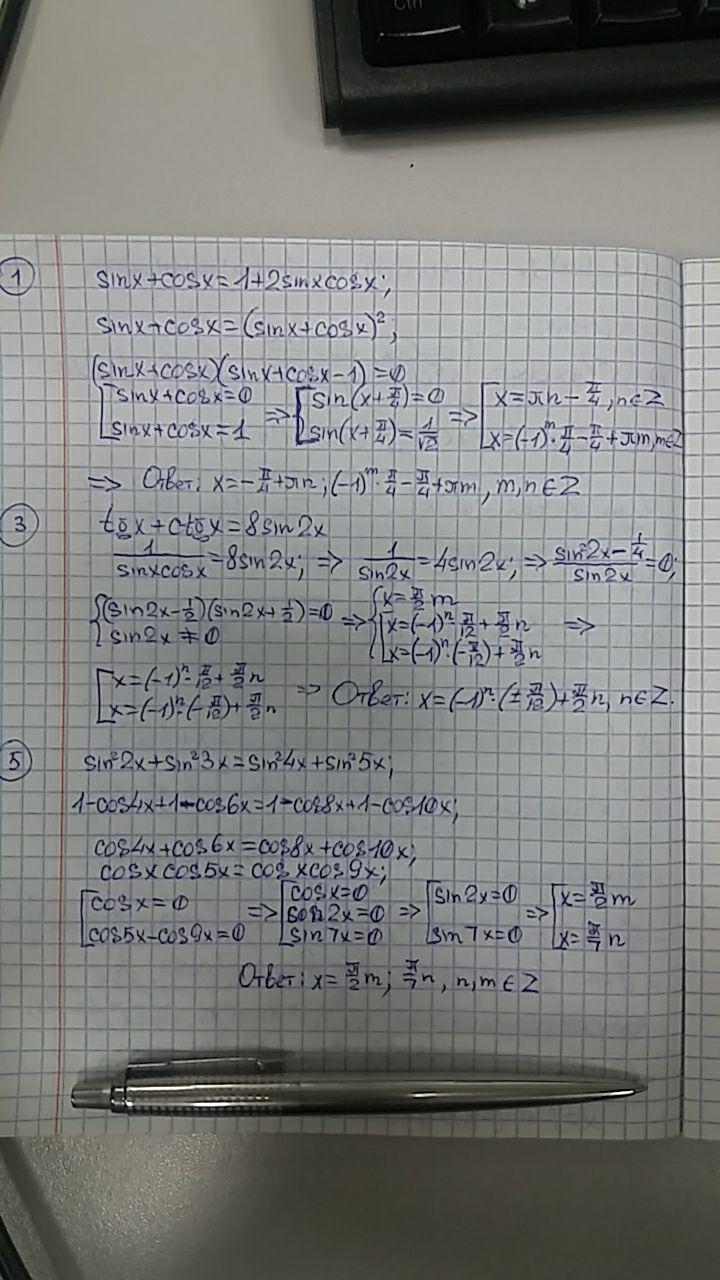 Ctrl
1
sinx+cosx=1+2sinxcosx;
sinx+cosx=(sinx+cosx)²;
(sinx+cosx)(sinx+cosx-1)=0
[sinx+cosx=0 => [sin(x+π/4)=0 => [x=πn-π/4, n∈Z
[sinx+cosx=1 [sin(x+π/4)=1/√2 [x=(-1)^m·π/4-π/4+πm, m∈Z
=> Ответ: x=-π/4+πn; (-1)^m·π/4-π/4+πm, m,n∈Z
3
tgx+ctgx=8sin2x
1/sinxcosx=8sin2x; => 1/sin2x=4sin2x; => (sin²2x-1/4)/sin2x=0;
{(sin2x-1/2)(sin2x+1/2)=0 => {x=π/2 m
{sin2x≠0 [x=(-1)^n π/12+π/2 n =>
[x=(-1)^n·(-π/12)+π/2 n
[x=(-1)^n·π/12+π/2 n
[x=(-1)^n·(-π/12)+π/2 n => Ответ: x=(-1)^n·(±π/12)+π/2 n, n∈Z.
5
sin²2x+sin²3x=sin²4x+sin²5x;
1-cos4x+1-cos6x=1-cos8x+1-cos10x;
cos4x+cos6x=cos8x+cos10x;
cosxcos5x=cosxcos9x;
[cosx=0 => [cosx=0 => [sin2x=0 => [x=π/2 m
[cos5x-cos9x=0 [sin2x=0 [sin7x=0 [x=π/7 n
[sin7x=0
Ответ: x=π/2 m; π/7 n, n,m∈Z